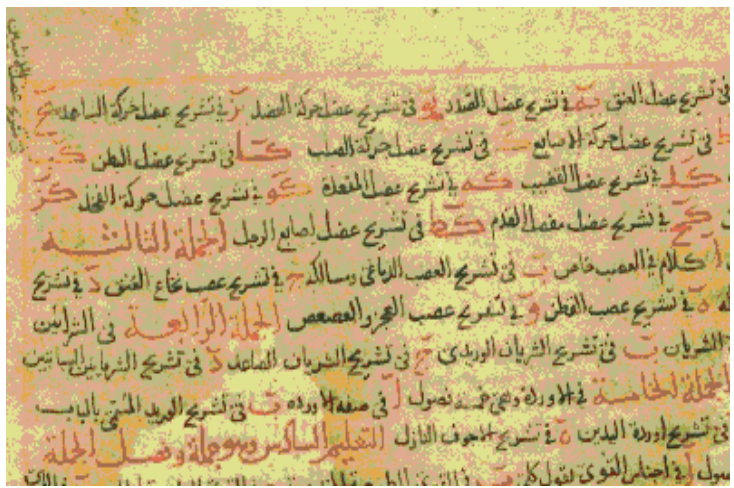 فى تشريح عضل العنق يه فى تشريح عضل الصدر يو فى تشريح عضل حركة العضد يز فى تشريح عضل حركة الساعد يح
فى تشريح عضل حركة الاصابع فى تشريح عضل حركة الصلب كا فى تشريح عضل البطن كب
كد فى تشريح عضل القضيب كه فى تشريح عضل المقعدة كو فى تشريح عضل حركة الفخذ كز
كح فى تشريح عضل مفصل القدم كط فى تشريح عضل اصابع الرجل الجملة الثالثة
ا كلام فى العصب خاص ب فى تشريح العصب الدماغى ومسالكه ج فى تشريح عصب نخاع العنق د فى تشريح
ه فى تشريح عصب القطن و فى تشريح عصب العجز والعصعص الجملة الرابعة فى الشرائين
الشريان ب فى تشريح الشريان الوريدى ج فى تشريح الشريان الصاعد د فى تشريح الشريانين السباتيين
الجملة الخامسة فى الاوردة وهى خمسة فصول ا فى صفة الاوردة ب فى تشريح الوريد المسمى بالباب
فى تشريح اوردة اليدين ه فى تشريح الاجوف النازل التعليم السادس وهو جملة وفصل الجملة
فصول ا فى اجناس القوى بقول كلى ب فى القوى الطبيعية